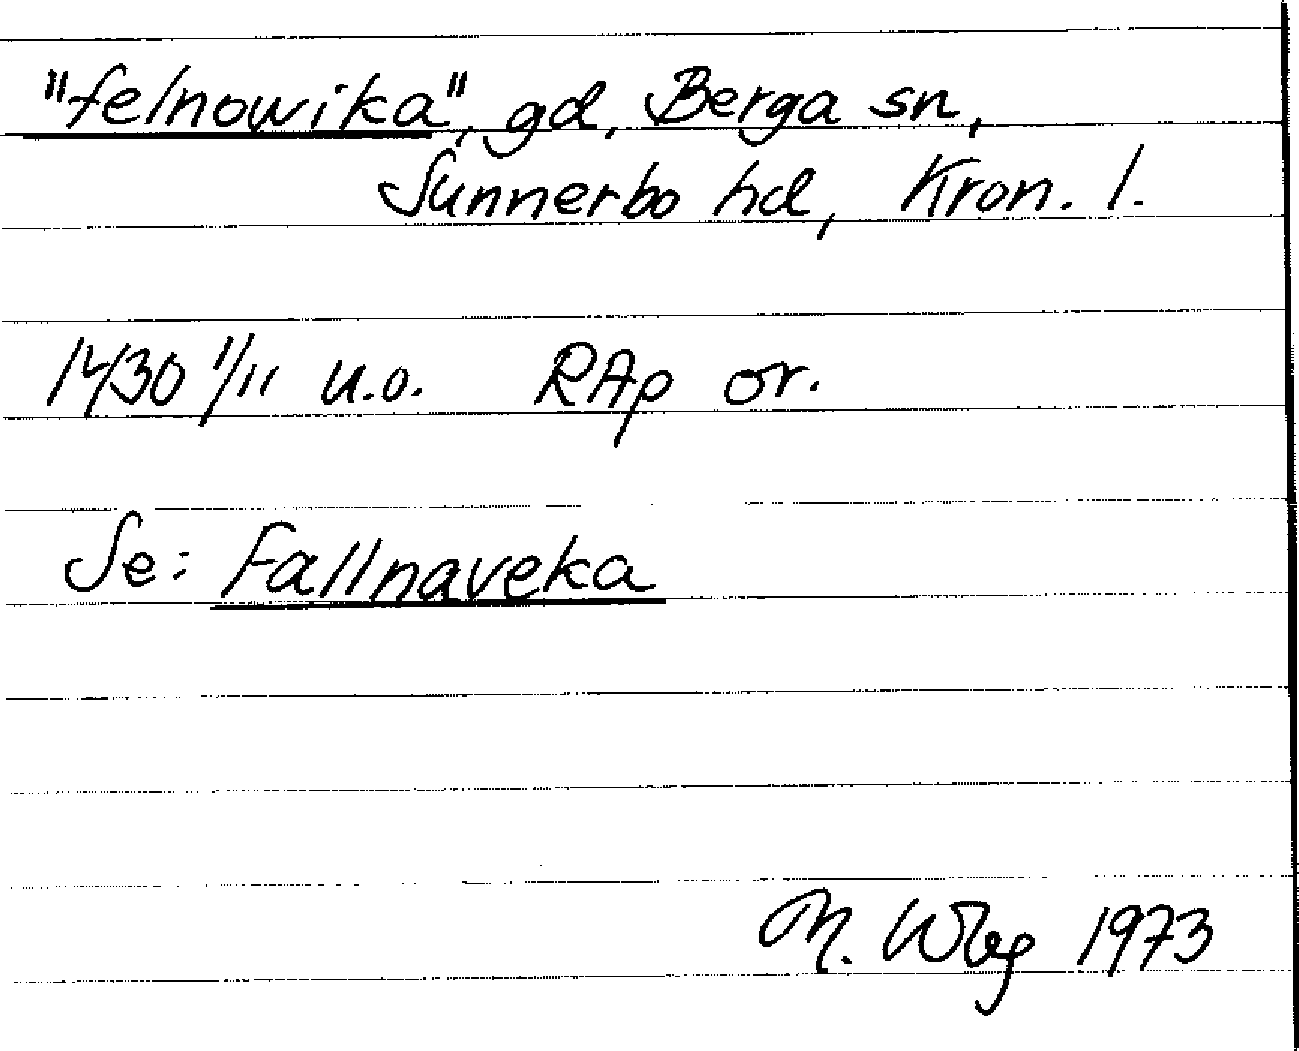 "felnowika", gd, Berga sn,
Sunnerbo hd, Kron. l.
1430 1/11 u.o. RAp or.
Se: Fallnaveka
M. Wbg 1973